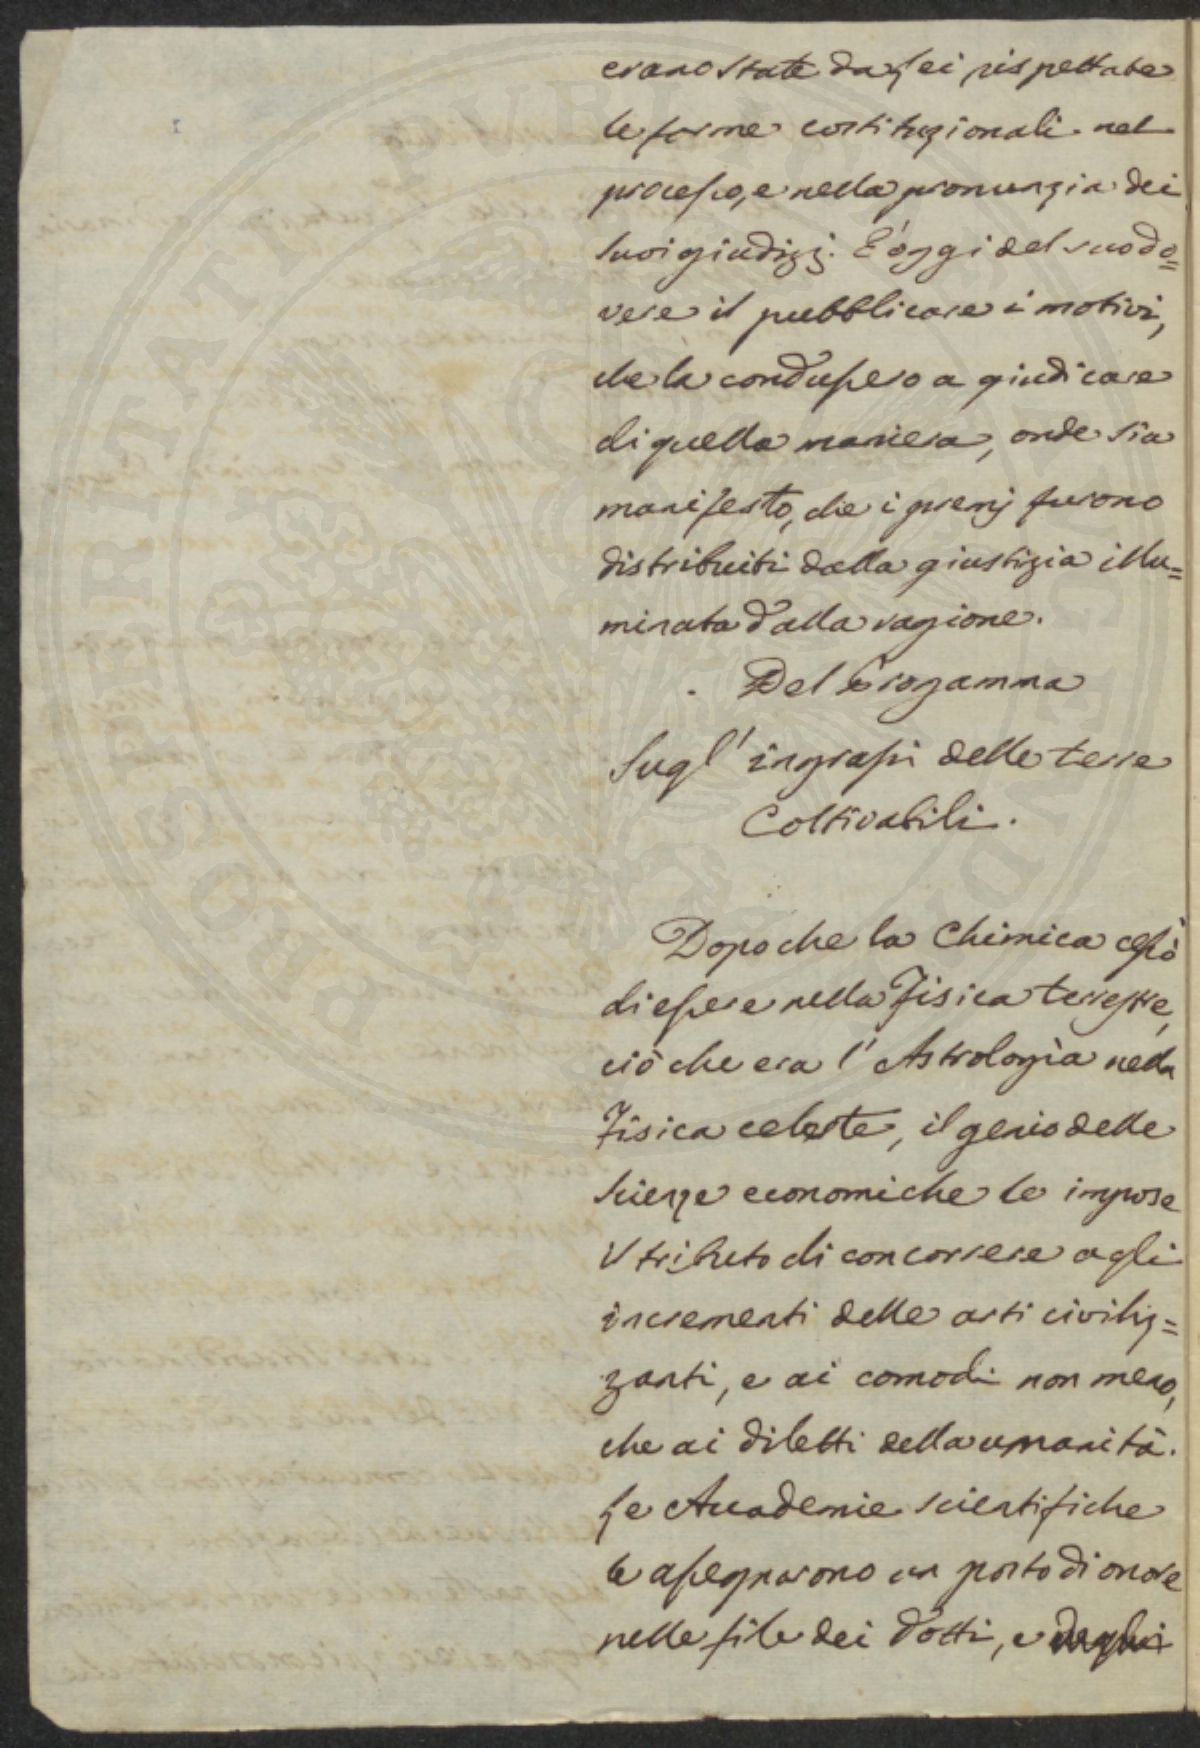 erano state da Lei rispettate
le forme costituzionali nel
processo, e nella pronunzia dei
suoi giudizj. È oggi del suo do=
vere il pubblicare i motivi,
che la condussero a giudicare
di quella maniera, onde sia
manifesto, che i premj furono
distribuiti dalla giustizia illu=
minata dalla ragione.
Del Progamma
Sugl' ingrassi delle terre
Coltivabili.
Dopo che la Chimica cessò
di essere nella Fisica terrestre,
ciò che era l' Astrologia nella
Fisica celeste, il genio delle
scienze economiche le impose
il tributo di concorrere agli
incrementi delle arti civiliz=
zanti, e ai comodi non meno,
che ai diletti della umanità.
Le Accademie scientifiche
le assegnarono un posto di onore
nelle file dei dotti, e
PROSPERITATI PUBLICAE AUGENDAE